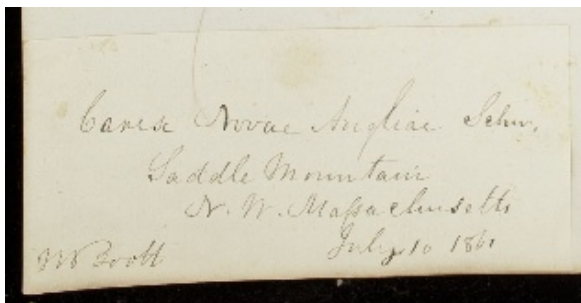 Carex Novae Angliae Schw.
Saddle Mountain
N. W. Massachusetts
July 10 1861
W Boott